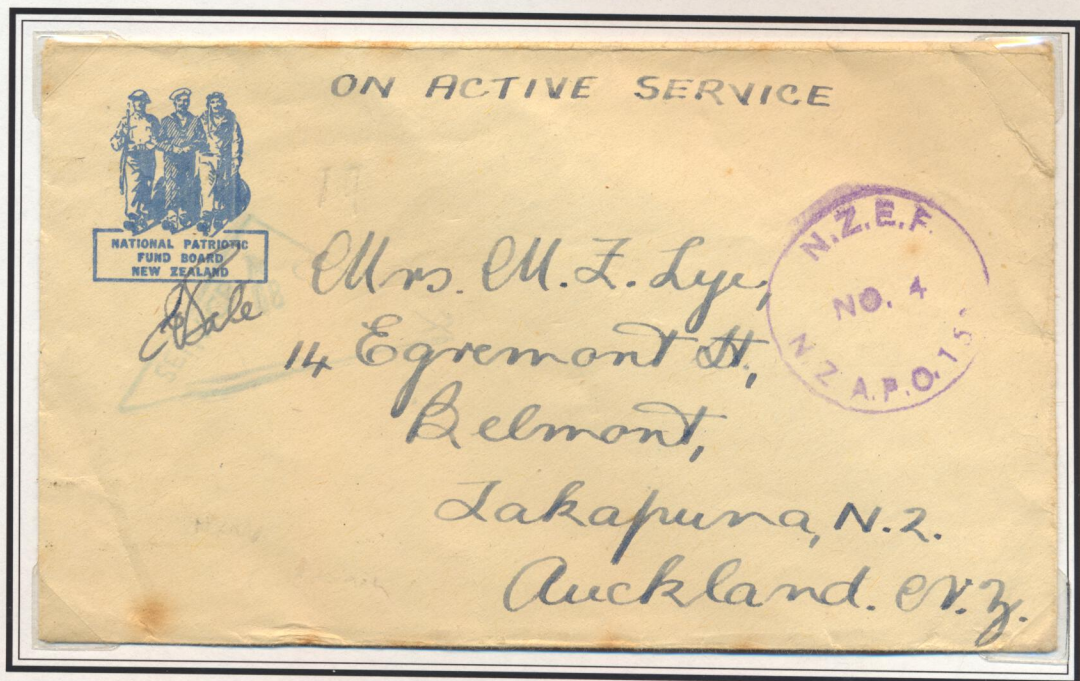 ON ACTIVE SERVICE
NATIONAL PATRIOTIC
FUND BOARD
NEW ZEALAND
N.Z.E.F.
NO. 4
N.Z.A.P.O.15
Mrs. M. Z. Lye,
14 Egremont St,
Belmont,
Takapuna, N.2.
Auckland. N.Z.